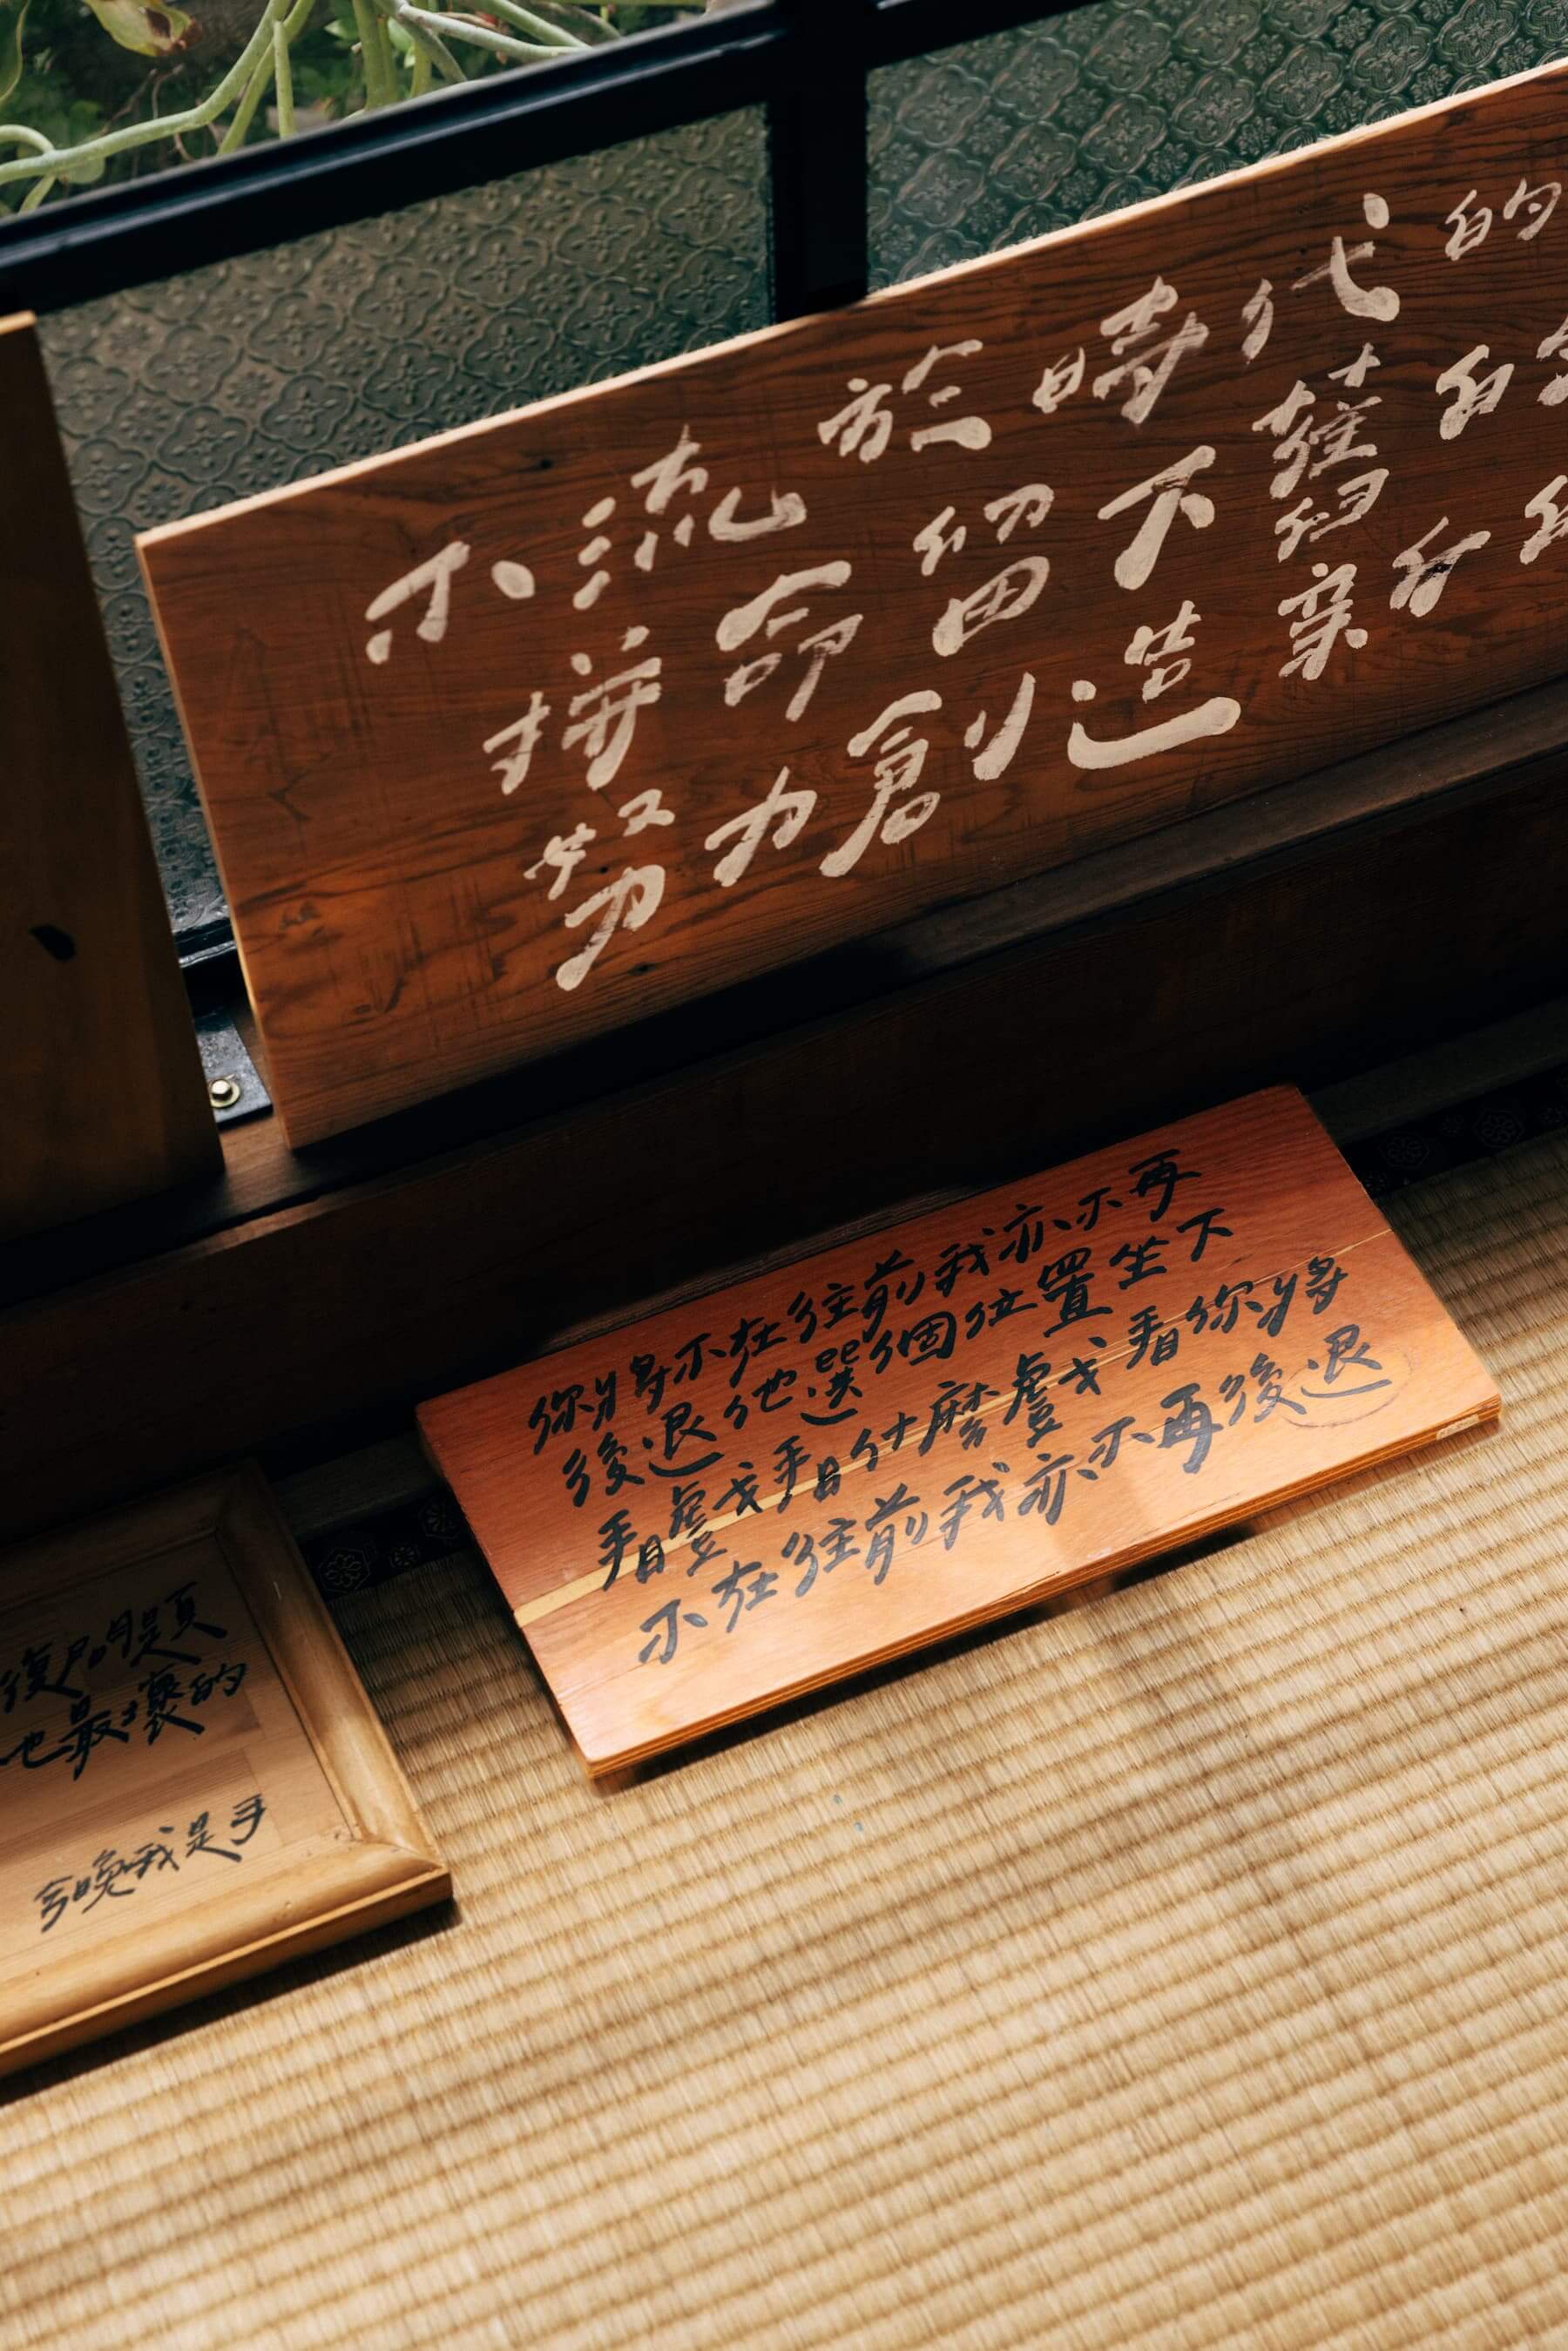 不流於時代的
拼命留下舊的
努力創造新的
你將不在往前我亦不再
後退他選個位置坐下
看虛戈看什麼虛戈看你將
不在往前我亦不再後退
復問題
也最壞的
今晚我是手